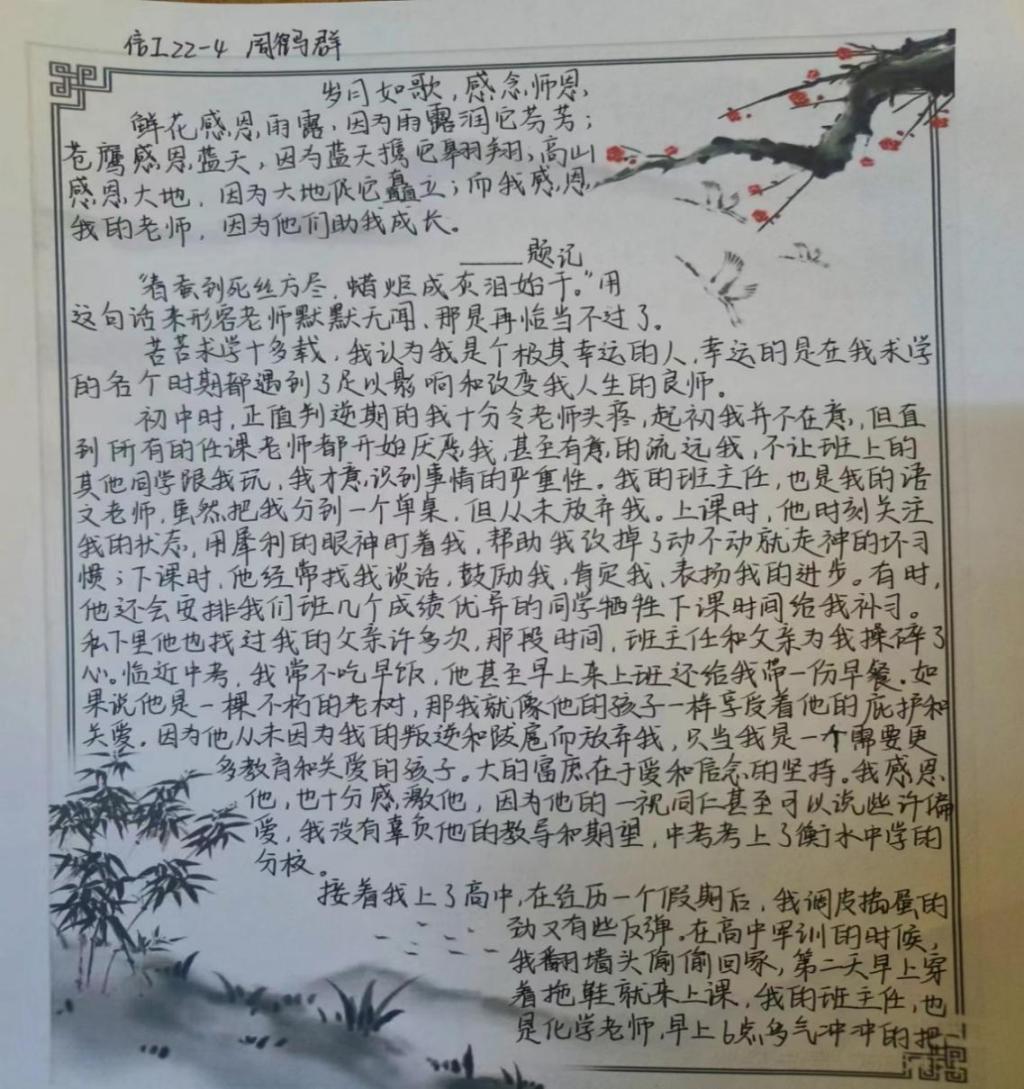 信工22-4 周鹤群
岁月如歌，感念师恩
鲜花感恩雨露，因为雨露润它芬芳；
苍鹰感恩蓝天，因为蓝天携它翱翔；高山
感恩大地，因为大地促它矗立；而我感恩
我的老师，因为他们助我成长。
——题记
“春蚕到死丝方尽，蜡炬成灰泪始干。”用
这句话来形容老师默默无闻、那是再恰当不过了。
苦苦求学十多载，我认为我是个极其幸运的人，幸运的是在我求学
的各个时期都遇到了足以影响和改变我人生的良师。
初中时，正值判逆期的我十分令老师头疼，起初我并不在意，但直
到所有的任课老师都开始厌恶我，甚至有意的流远我，不让班上的
其他同学跟我玩，我才意识到事情的严重性。我的班主任，也是我的语
文老师，虽然把我分到一个单桌，但从未放弃我。上课时，他时刻关注
我的状态，用犀利的眼神盯着我，帮助我改掉了动不动就走神的坏习
惯；下课时，他经常找我谈话，鼓励我，肯定我、表扬我的进步。有时，
他还会安排我们班几个成绩优异的同学牺牲下课时间给我补习。
私下里他也找过我的父亲许多次，那段时间，班主任和父亲为我操碎了
心。临近中考，我常不吃早饭，他甚至早上来上班还给我带一份早餐。如
果说他是一棵不朽的老树，那我就像他的孩子一样享受着他的庇护和
关爱。因为他从未因为我的叛逆和跋扈而放弃我，只当我是一个需要更
多教育和关爱的孩子。大的富庶在于爱和信念的坚持。我感恩
他，也十分感激他，因为他的一视同仁甚至可以说些许偏
爱，我没有辜负他的教导和期望，中考考上了衡水中学的
分校。
接着我上了高中，在经历一个假期后，我调皮捣蛋的
劲又有些反弹。在高中军训的时候，
我翻墙头偷偷回家，第二天早上穿
着拖鞋就来上课，我的班主任，也
是化学老师，早上6点多气冲冲的把